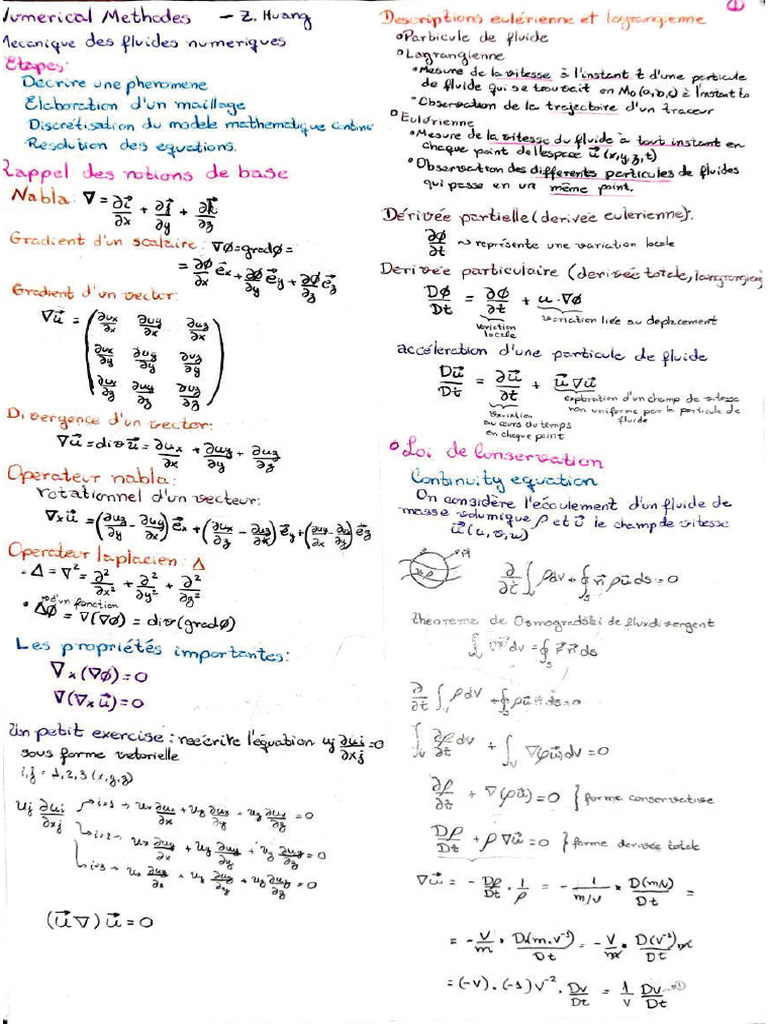 Numerical Methodes - Z. Huang
Mecanique des fluides numeriques
Etapes:
Décrire une phenomene
Elaboration d'un maillage
Discrétisation du modele mathematique continu
Resolution des equations.
Rappel des notions de base
Nabla: ∇ = ∂i⃗/∂x + ∂j⃗/∂y + ∂k⃗/∂z
Gradient d'un scalaire: ∇ø = gradø =
= ∂ø/∂x e⃗x + ∂ø/∂y e⃗y + ∂ø/∂z e⃗z
Gradient d'un vector:
∇u⃗ =
∂ux/∂x ∂uy/∂x ∂uz/∂x
∂ux/∂y ∂uy/∂y ∂uz/∂y
∂ux/∂z ∂uy/∂z ∂uz/∂z
Divergence d'un vector:
∇u⃗ = div u⃗ = ∂ux/∂x + ∂uy/∂y + ∂uz/∂z
Operateur nabla:
rotationnel d'un vecteur:
∇xu⃗ = (∂uz/∂y - ∂uy/∂z) e⃗x + (∂ux/∂z - ∂uz/∂x) e⃗y + (∂uy/∂x - ∂ux/∂y) e⃗z
Operateur laplacien: Δ
= Δ = ∇² = ∂²/∂x² + ∂²/∂y² + ∂²/∂z²
d'un fonction
Δø = ∇(∇ø) = div(gradø)
Les propriétés importantes:
∇x(∇ø) = 0
∇(∇xu⃗) = 0
Un petit exercise: reécrite l'équation uj ∂ui/∂xj = 0
sous forme vetorielle
i,j = 1,2,3 (x,y,z)
uj ∂ui/∂xj
i=1 → ux ∂ux/∂x + uy ∂ux/∂y + uz ∂ux/∂z = 0
i=2 → ux ∂uy/∂x + uy ∂uy/∂y + uz ∂uy/∂z = 0
i=3 → ux ∂uz/∂x + uy ∂uz/∂y + uz ∂uz/∂z = 0
(u⃗∇)u⃗ = 0
①
Descriptions eulérienne et lagrangienne
Particule de fluide
Lagrangienne
Mesure de la vitesse à l'instant t d'une particule
de fluide qui se trouvait en Mo(a,b,c) à l'instant to
Observation de la trajectoire d'un traceur
Eulérienne
Mesure de la vitesse du fluide à tout instant en
chaque point de l'espace u⃗(x,y,z,t)
Observation des differents particules de fluides
qui passe en un même point.
Dérivée partielle (derivée eulerienne).
∂ø/∂t ~ représente une variation locale
Derivée particulaire (derivée totale, langrangien)
Dø/Dt = ∂ø/∂t + u·∇ø
variation locale
variation liée au deplacement
accéleration d'une particule de fluide
Du⃗/Dt = ∂u⃗/∂t + u⃗∇u⃗
variation
au cours du temps
en chaque point
exploration d'un champ de vitesse
non uniforme par la particule de
fluide
Loi de Conservation
Continuity equation
On considère l'écoulement d'un fluide de
masse volumique ρ et u⃗ le champ de vitesse
u⃗(u,v,w)
∂/∂t ∫v ρdv + ∮s n⃗ρu⃗ds = 0
theoreme de Osmogradski de fluxdivergent
∫v ∇F⃗dv = ∮s F⃗n⃗ds
∂/∂t ∫v ρdv + ∮s ρu⃗n⃗ds = 0
∫v ∂ρ/∂t dv + ∫v ∇(ρu⃗)dv = 0
∂ρ/∂t + ∇(ρu⃗) = 0 } forme conservative
Dρ/Dt + ρ∇u⃗ = 0 } forme derivée totale
∇u⃗ = - Dρ/Dt · 1/ρ = - 1/m/v * D(m/v)/Dt =
= - v/m * D(m.v⁻¹)/Dt = - v/m * D(v⁻¹)/Dt m
= (-v).(-1)v⁻² . Dv/Dt = 1/v Dv/Dt ①